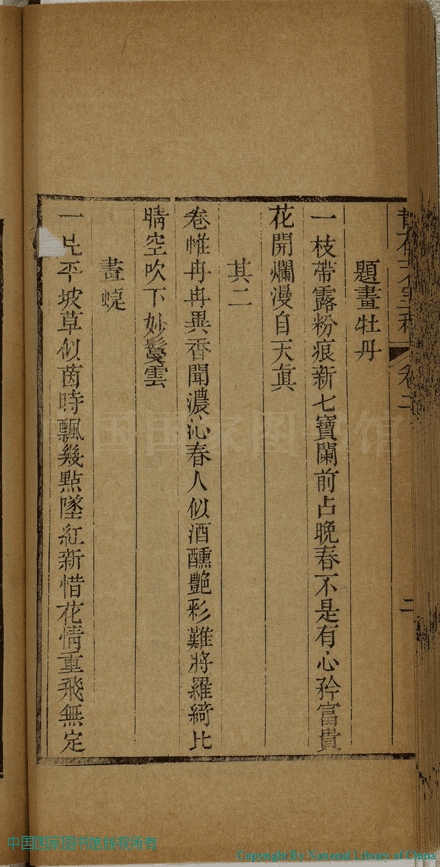 題畫牡丹
一枝帶露粉痕新七寶闌前占晚春不是有心矜富貴
花開爛漫自天真
其二
卷帷冉冉異香聞濃沁春人似酒醺艷彩難將羅綺比
晴空吹下妙鬘雲
畫蝶
一片平坡草似茵時飄幾點墜紅新惜花情重飛無定
卷二
二
中国国家图书馆
中国国家图书馆版权所有
Copyright by National Library of China